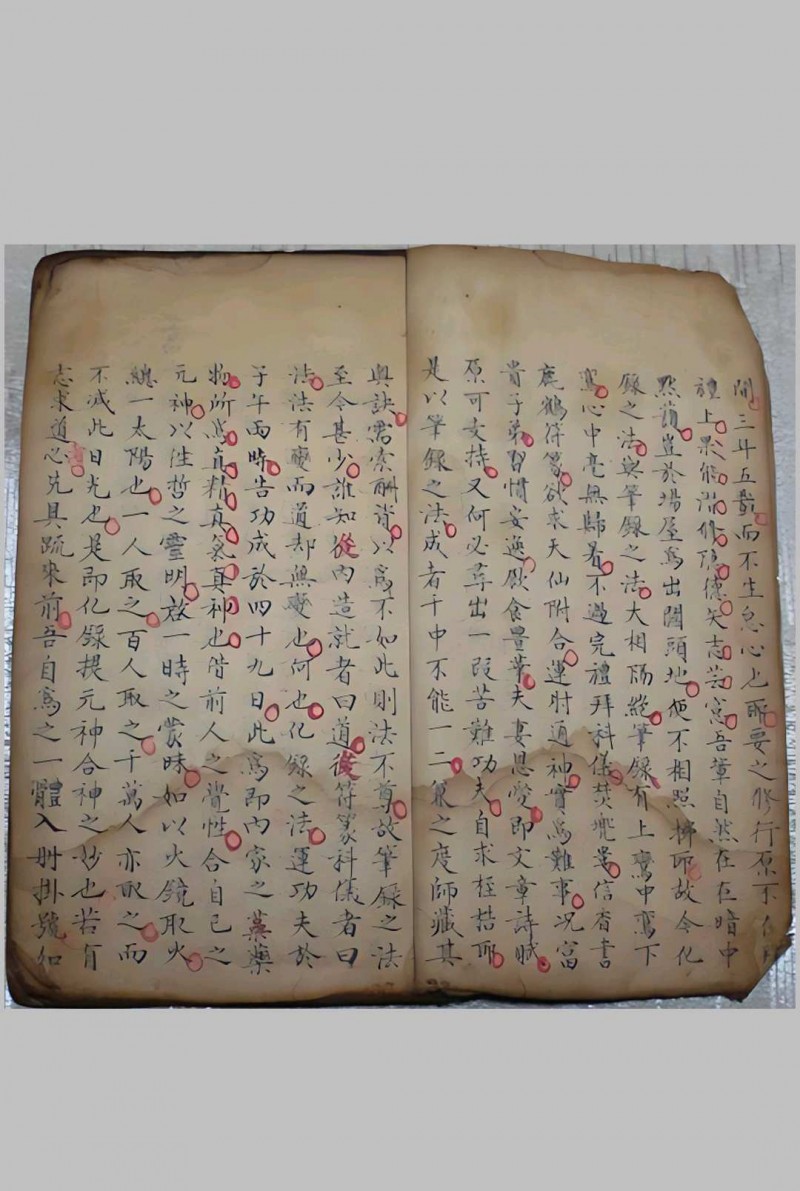 間三年五載而不生怠心也耶要之修行原不在
禮上果能潛修隱德矢志芸窓吾輩自然在在暗中
點頭豈於場屋爲出闗頭地便不相照拂耶故今化
錄之法與筆錄之法大相隔縱筆錄有上鸞中鸞下
鸞心中毫無歸着不過完禮拜科儀焚兠婁信香書
鹿鶴符篆欲求天仙附合運肘通神實爲難事况富
貴子弟習慣安逸飲食豐華夫妻恩愛即文章詩賦
原可支持又何必尋出一段苦難功夫自求桎梏耶
是以筆錄之法成者千中不能一二箕之度師藏其
奥訣需索酬背以爲不如此則法不尊故筆錄之法
至今甚少誰知從内造就者曰道後符篆科儀者曰
法法有變而道却無變也何也化錄之法運功夫於
子午兩時告功成於四十九日此爲即内家之藥
物所爲真精真氣真神也借前人之覺性合自己之
元神以性哲之靈明啟一時之蒙昧如以火鏡取火
總一太陽也一人取之百人取之千萬人亦取之而
不減此日光也是即化錄提元神合神之妙也若有
志求道心兄具疏來前吾自爲之一體入册掛號如